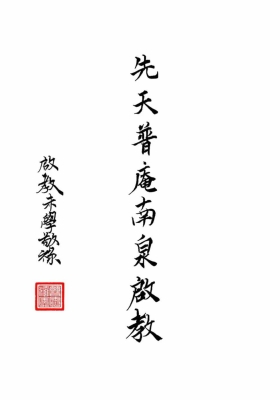 先天普庵南泉啟教
啟教末學敬録